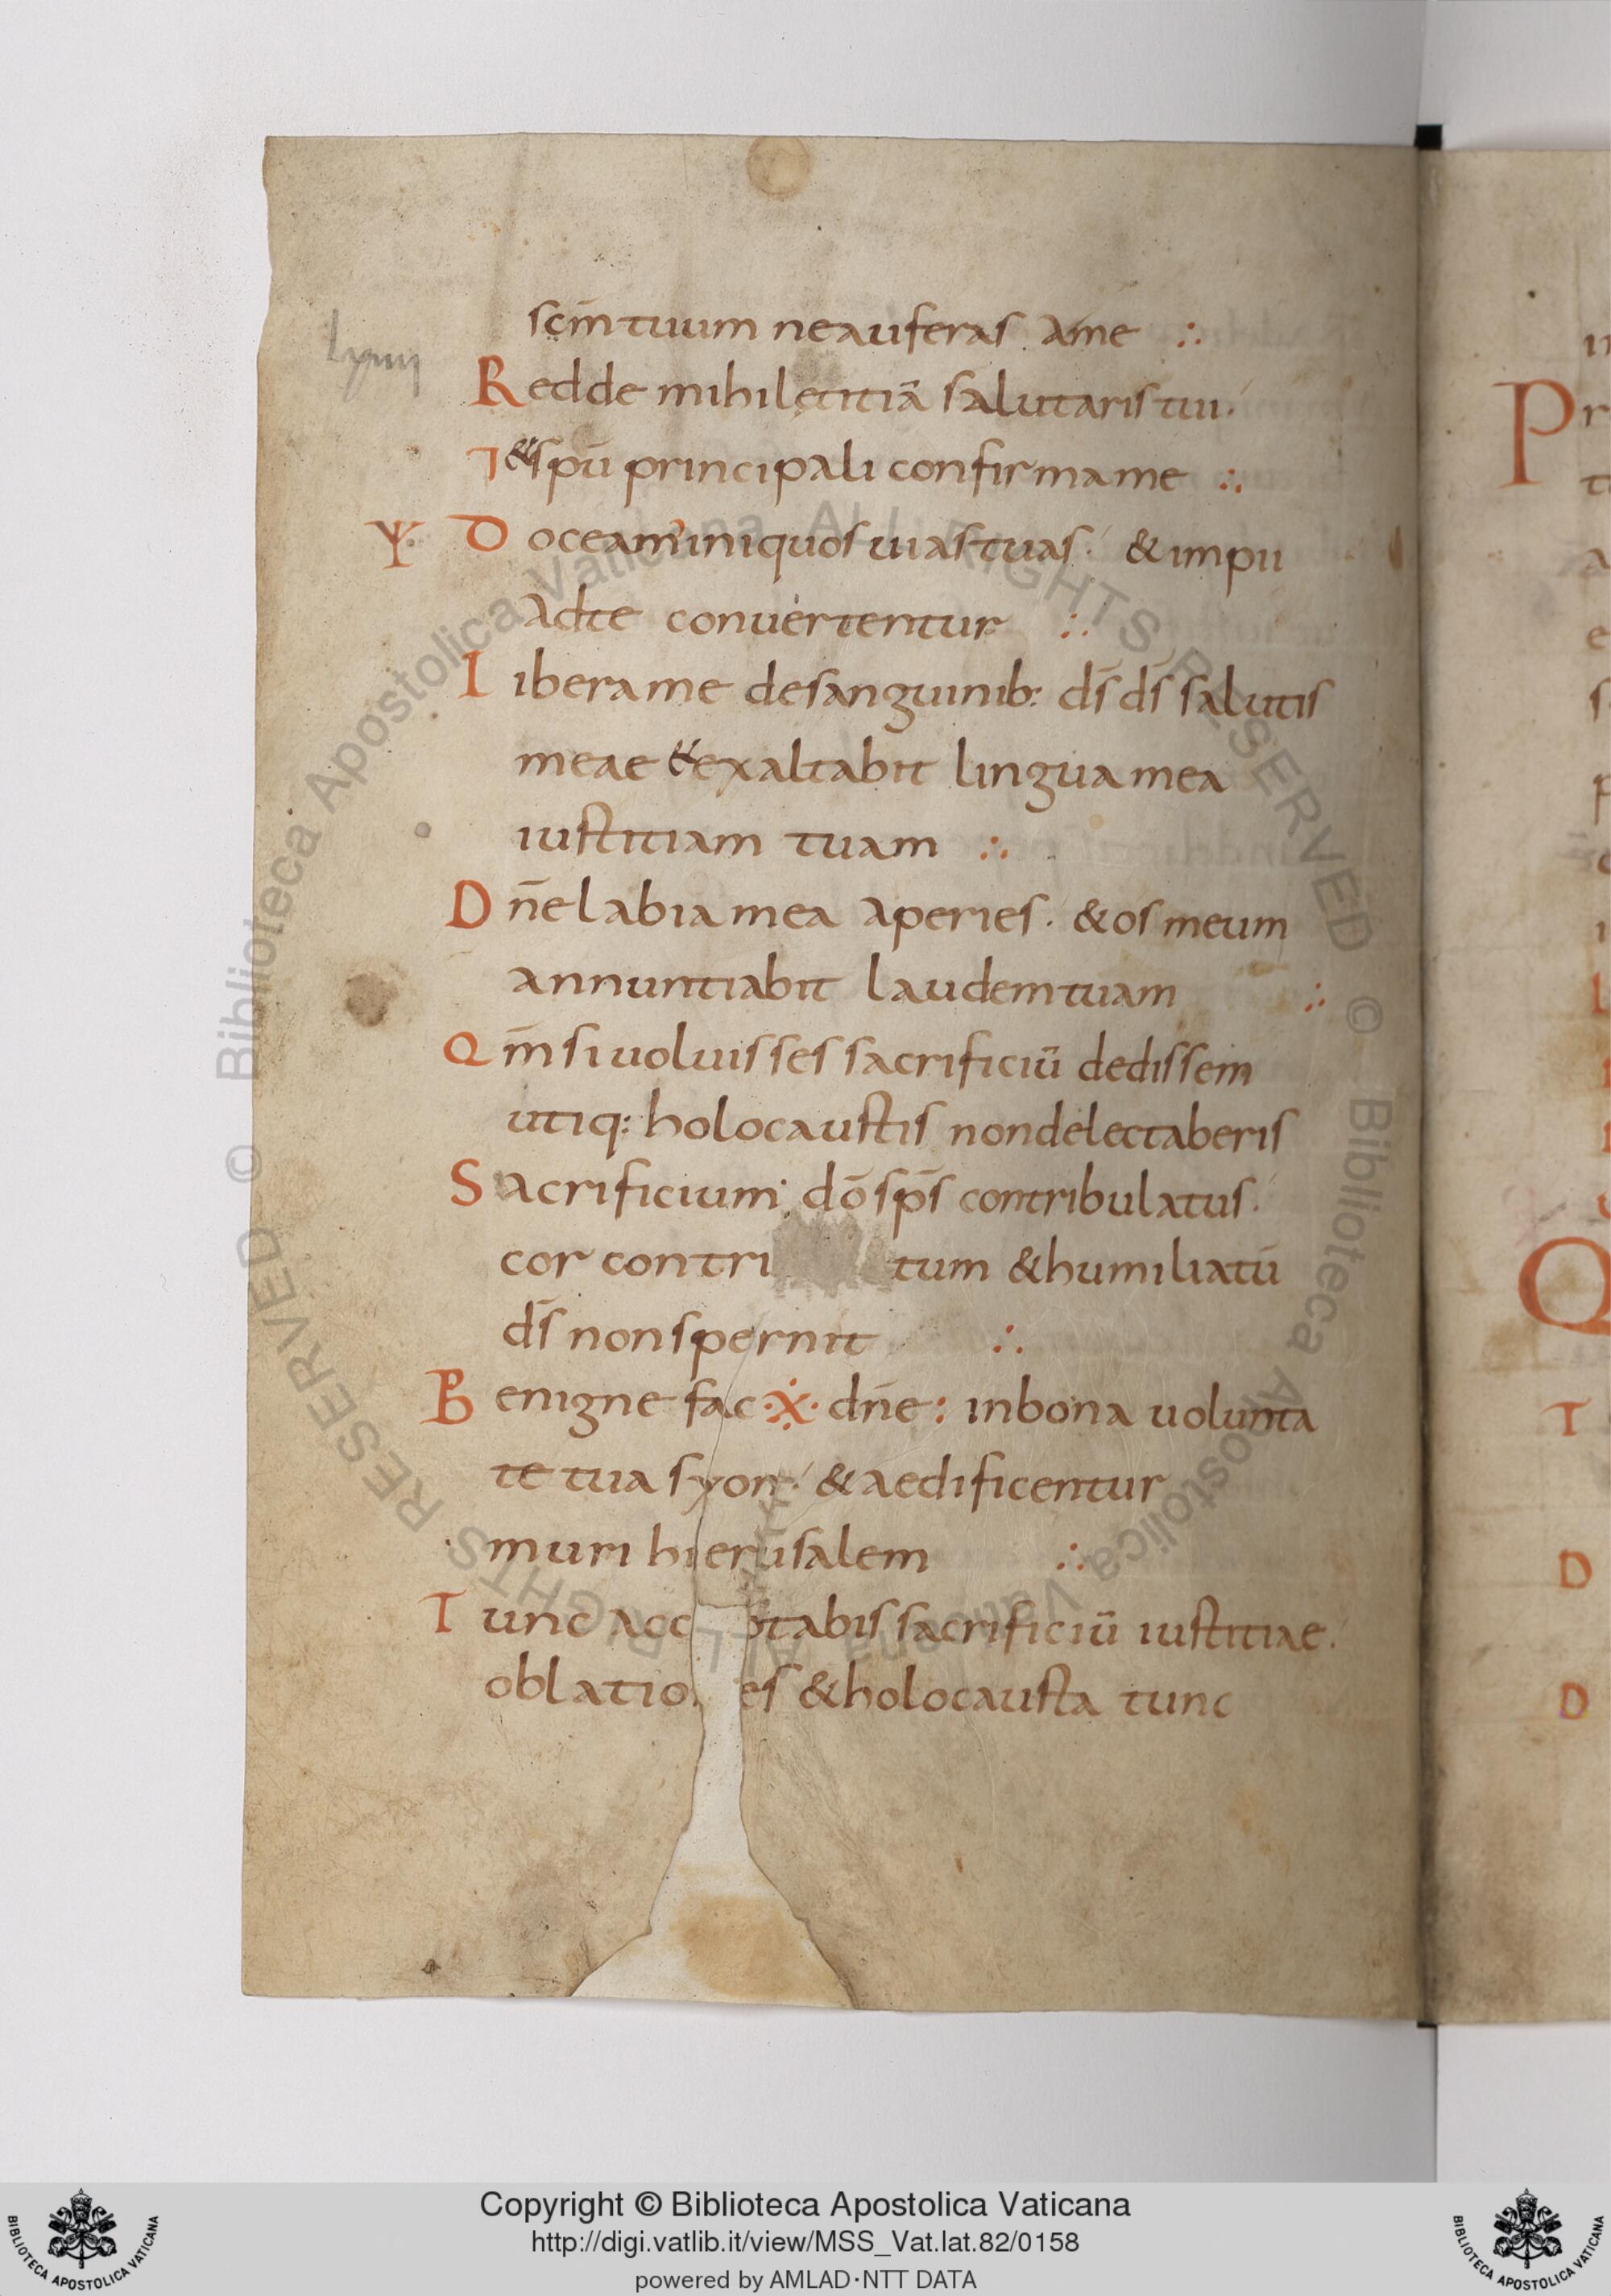 scm̄ tuum ne auferas ame ∴
Redde mihi lętitiā salutaris tui.
⁊ & spū principali confirma me ∴
Doceam iniquos uias tuas. & impii
adte conuertentur ∴
Libera me de sanguinib: ds̄ ds̄ salutis
meae & exaltabit lingua mea
iustitiam tuam ∴
Dn̄e labia mea aperies. & os meum
annuntiabit laudem tuam ∴
Qm̄ si uoluisses sacrificiū dedissem
utiq: holocaustis non delectaberis
Sacrificium dō sps̄ contribulatus.
cor contri tum & humiliatū
ds̄ non spernit ∴
Benigne fac ·x· dn̄e: in bona uolunta
te tua syon. & aedificentur
muri hierusalem ∴
Tunc acc ptabis sacrificiū iustitiae.
oblatio es & holocausta tunc
Copyright © Biblioteca Apostolica Vaticana
http://digi.vatlib.it/view/MSS_Vat.lat.82/0158
powered by AMLAD·NTT DATA